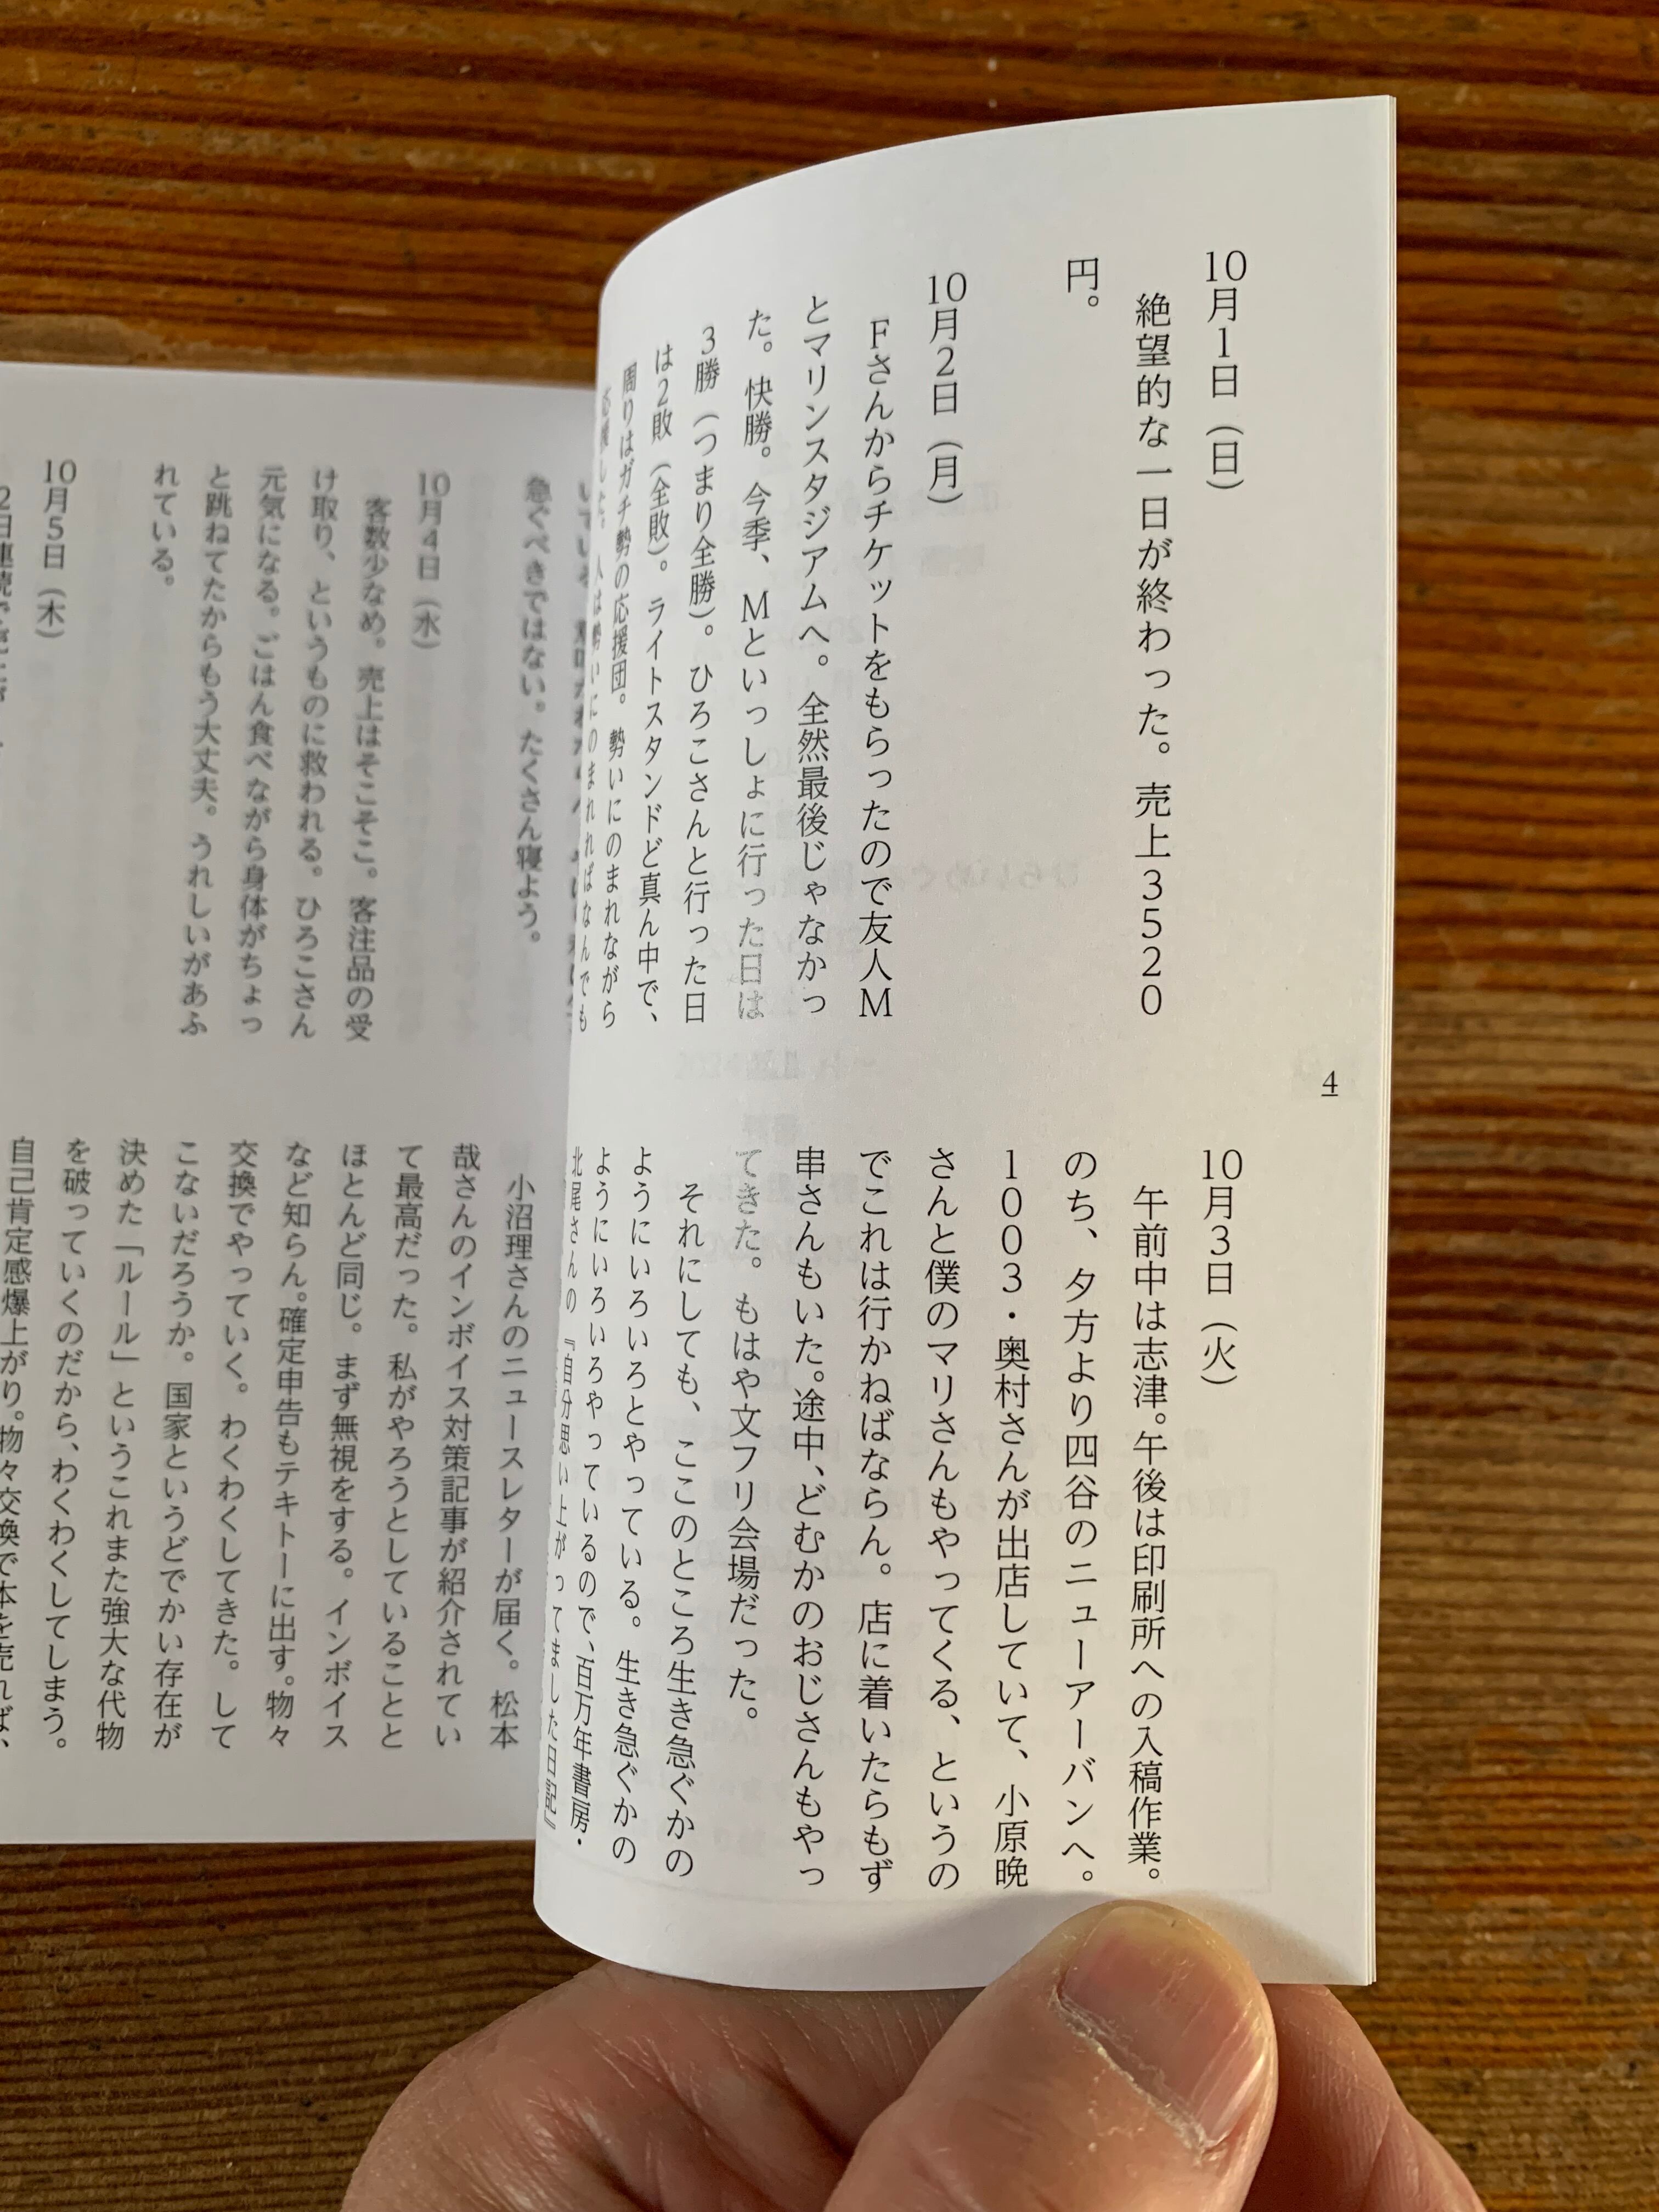 4
10月1日（日）
絶望的な一日が終わった。売上3520
円。
10月2日（月）
Fさんからチケットをもらったので友人M
とマリンスタジアムへ。全然最後じゃなかっ
た。快勝。今季、Mといっしょに行った日は
3勝（つまり全勝）。ひろこさんと行った日
は2敗（全敗）。ライトスタンドど真ん中で、
周りはガチ勢の応援団。勢いにのまれながら
応援した。人は勢いにのまれればなんでも
10月3日（火）
午前中は志津。午後は印刷所への入稿作業。
のち、夕方より四谷のニューアーバンへ。
1003・奥村さんが出店していて、小原晩
さんと僕のマリさんもやってくる、というの
でこれは行かねばならん。店に着いたらもず
串さんもいた。途中、どむかのおじさんもやっ
てきた。もはや文フリ会場だった。
それにしても、ここのところ生き急ぐかの
ようにいろいろとやっている。生き急ぐかの
ようにいろいろやっているので、百万年書房・
北尾さんの『自分思い上がってました日記』
急ぐべきではない。たくさん寝よう。
10月4日（水）
客数少なめ。売上はそこそこ。客注品の受
け取り、というものに救われる。ひろこさん
元気になる。ごはん食べながら身体がちょっ
と跳ねてたからもう大丈夫。うれしいがあふ
れている。
10月5日（木）
2日連続で
小沼理さんのニュースレターが届く。松本
哉さんのインボイス対策記事が紹介されてい
て最高だった。私がやろうとしていることと
ほとんど同じ。まず無視をする。インボイス
など知らん。確定申告もテキトーに出す。物々
交換でやっていく。わくわくしてきた。して
こないだろうか。国家というどでかい存在が
決めた「ルール」というこれまた強大な代物
を破っていくのだから、わくわくしてしまう。
自己肯定感爆上がり。物々交換で本を売れば、